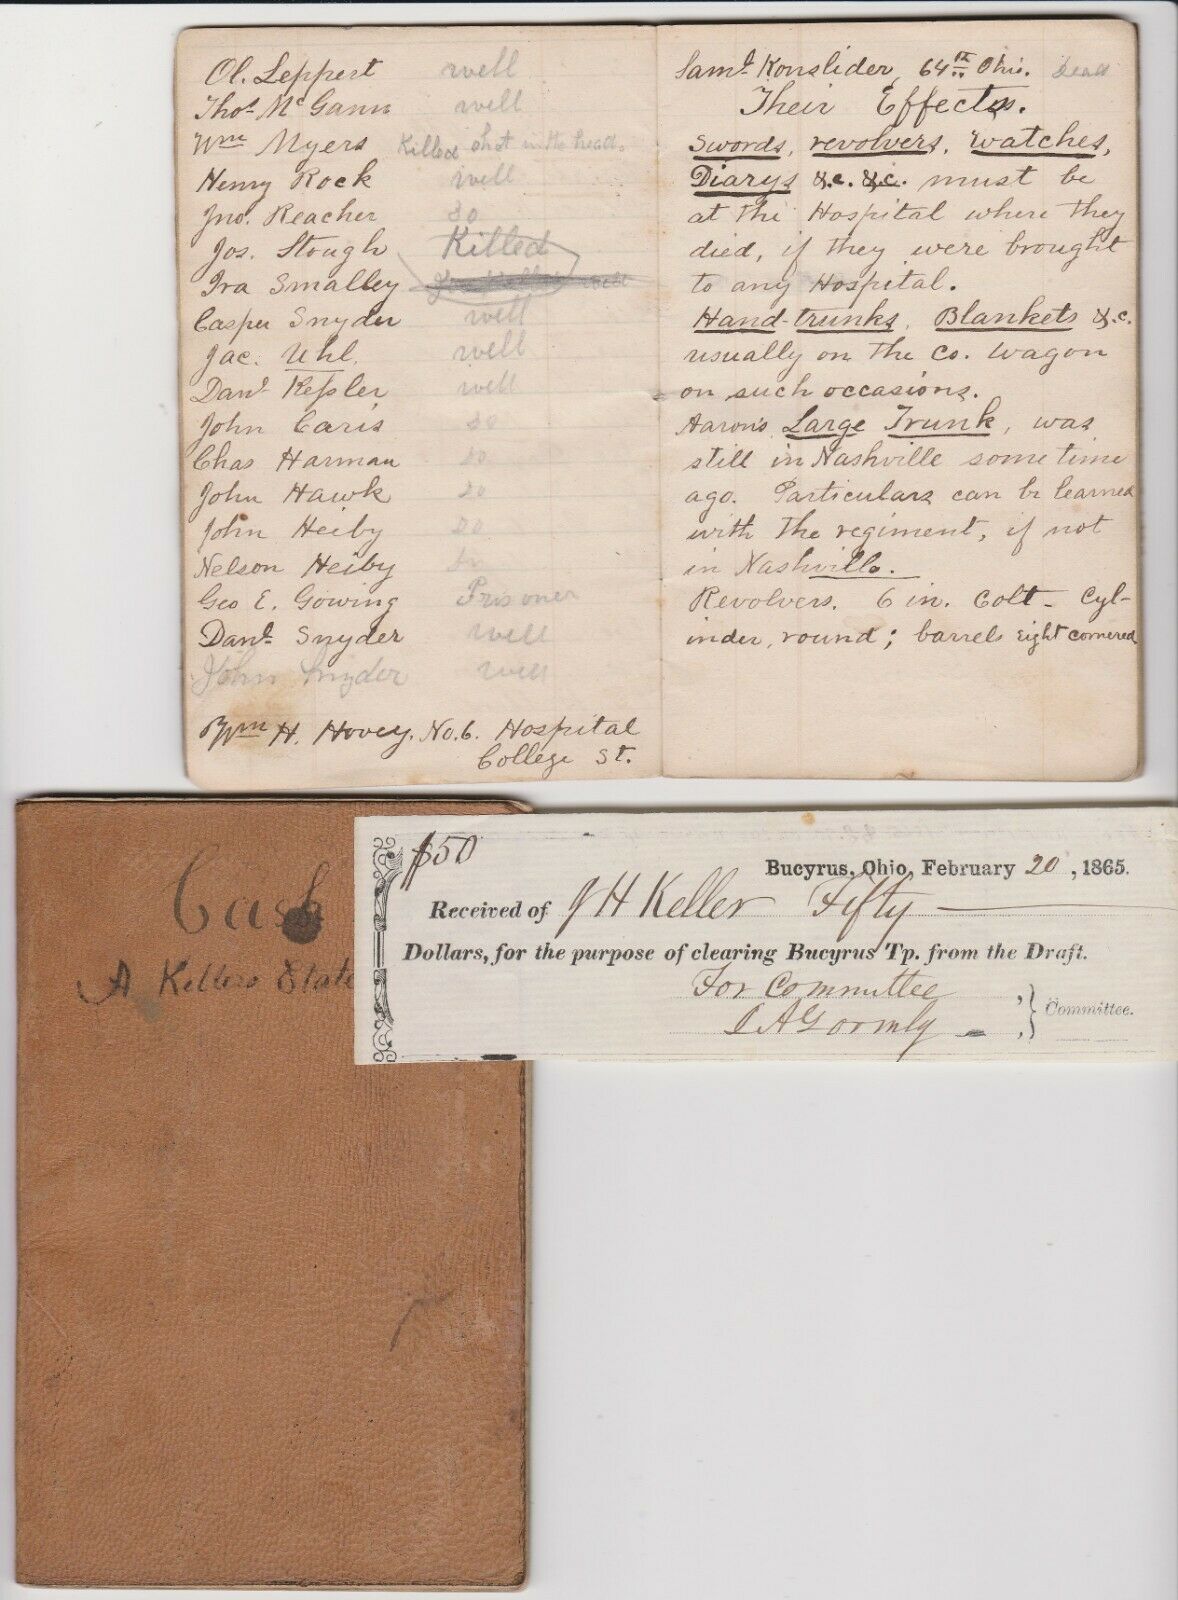 Ol. Leppert well
Thos. McGann well
Wm Myers Killed shot in the head.
Henry Rock well
Jno. Reacher do
Jos. Stough Killed
Ira Smalley well
Casper Snyder well
Jac. Uhl. well
Danl Kessler well
John Caris do
Chas Harman do
John Hawk do
John Heiby do
Nelson Heiby do
Geo E. Gowing Prisoner
Danl. Snyder well
John Snyder well
Wm H. Hovey. No. 6. Hospital
College St.
Saml Konslider, 64th Ohio. Dead
Their Effects.
Swords, revolvers, watches,
Diarys &.c. &.c. must be
at the Hospital where they
died, if they were brought
to any Hospital.
Hand-trunks, Blankets &.c.
usually on the Co. wagon
on such occasions.
Aaron's Large Trunk, was
still in Nashville some time
ago. Particulars can be learned
with the regiment, if not
in Nashville.
Revolvers. 6 in. Colt - Cyl-
inder, round; barrels eight cornered
Cash
A Kellers Estate
$50
Bucyrus, Ohio, February 20, 1865.
Received of J H Keller Fifty
Dollars, for the purpose of clearing Bucyrus Tp. from the Draft.
For Committee
Committee.
A Gormly